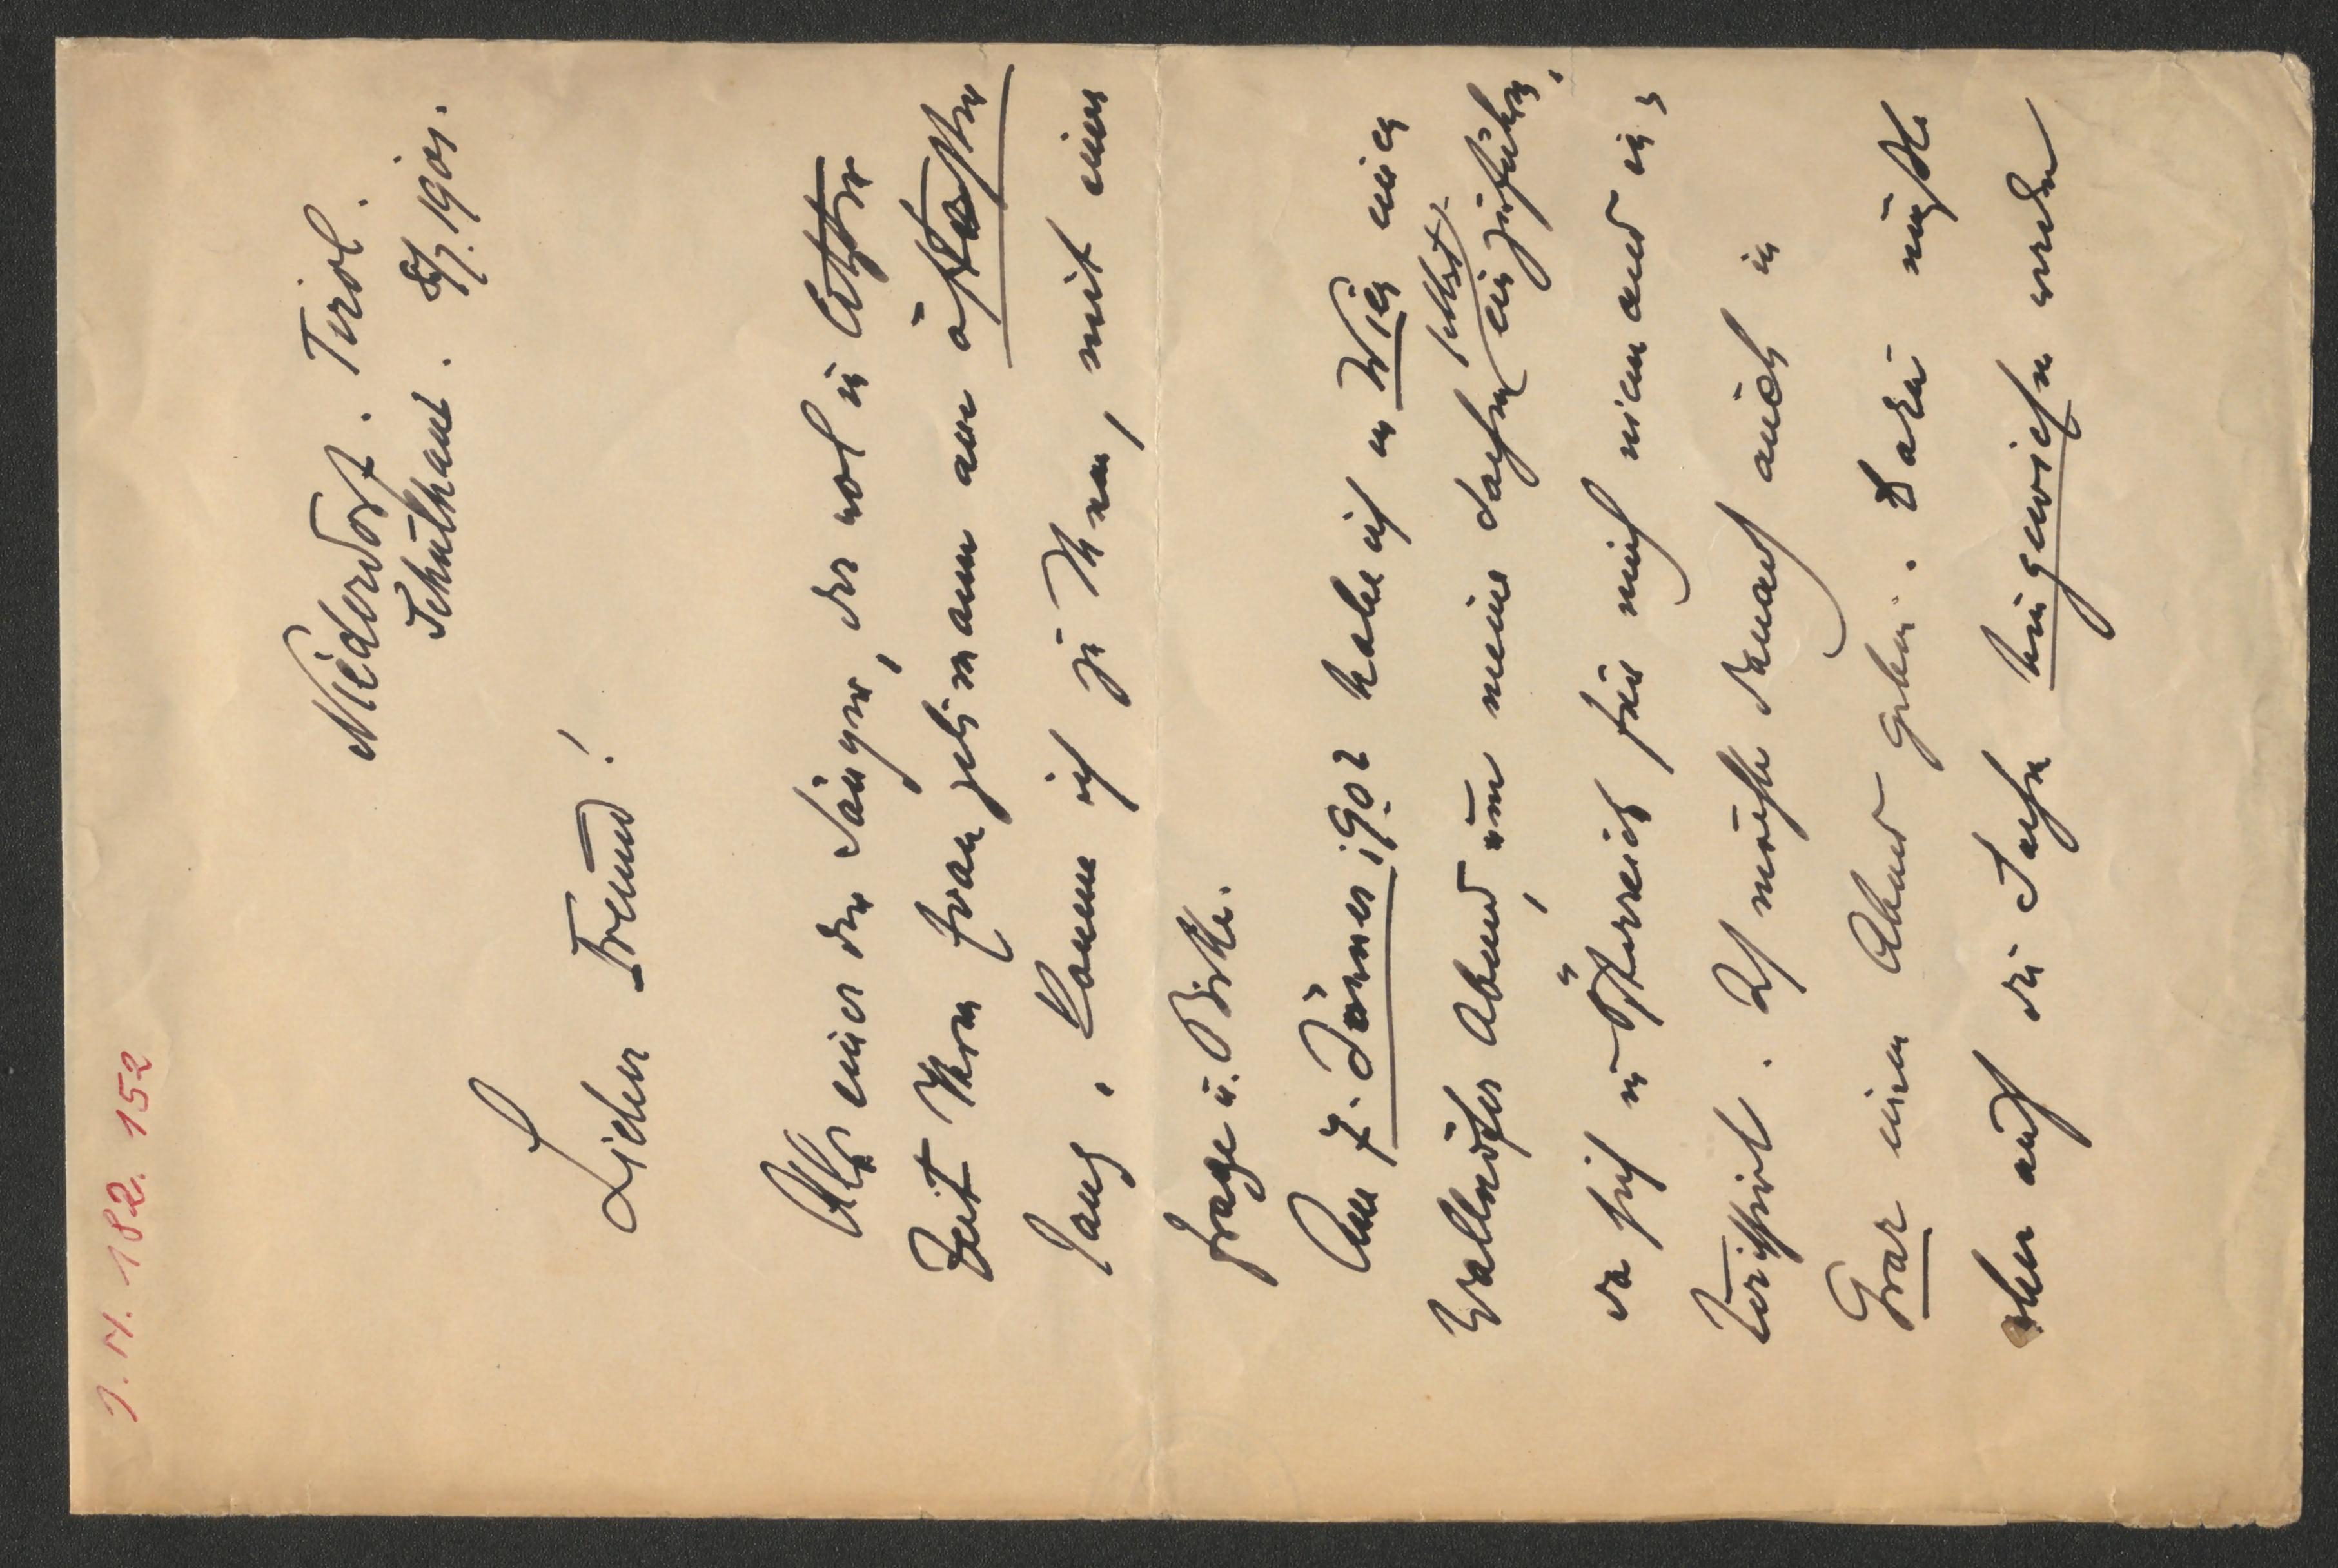 I. N. 182.152
Niederdorf. Tirol.
Schulhaus. 8/7. 1901.
Lieber Freund!
Als einer der Sänger, der wol in letzter
Zeit Ihren Evangelimann am öftesten
sang, komme ich zu Ihnen, mit einer
Frage u. Bitte.
Am 7. Jänner 1902 habe ich in Wien einen
Wallnöfer Abend, um meine Sachen selbst einzuführen,
da sich in Österreich für mich niemand in-
teressirt. Ich möchte darnach auch in
Graz einen Abend geben. Dazu müßte
aber auf die Sache hingewiesen werden